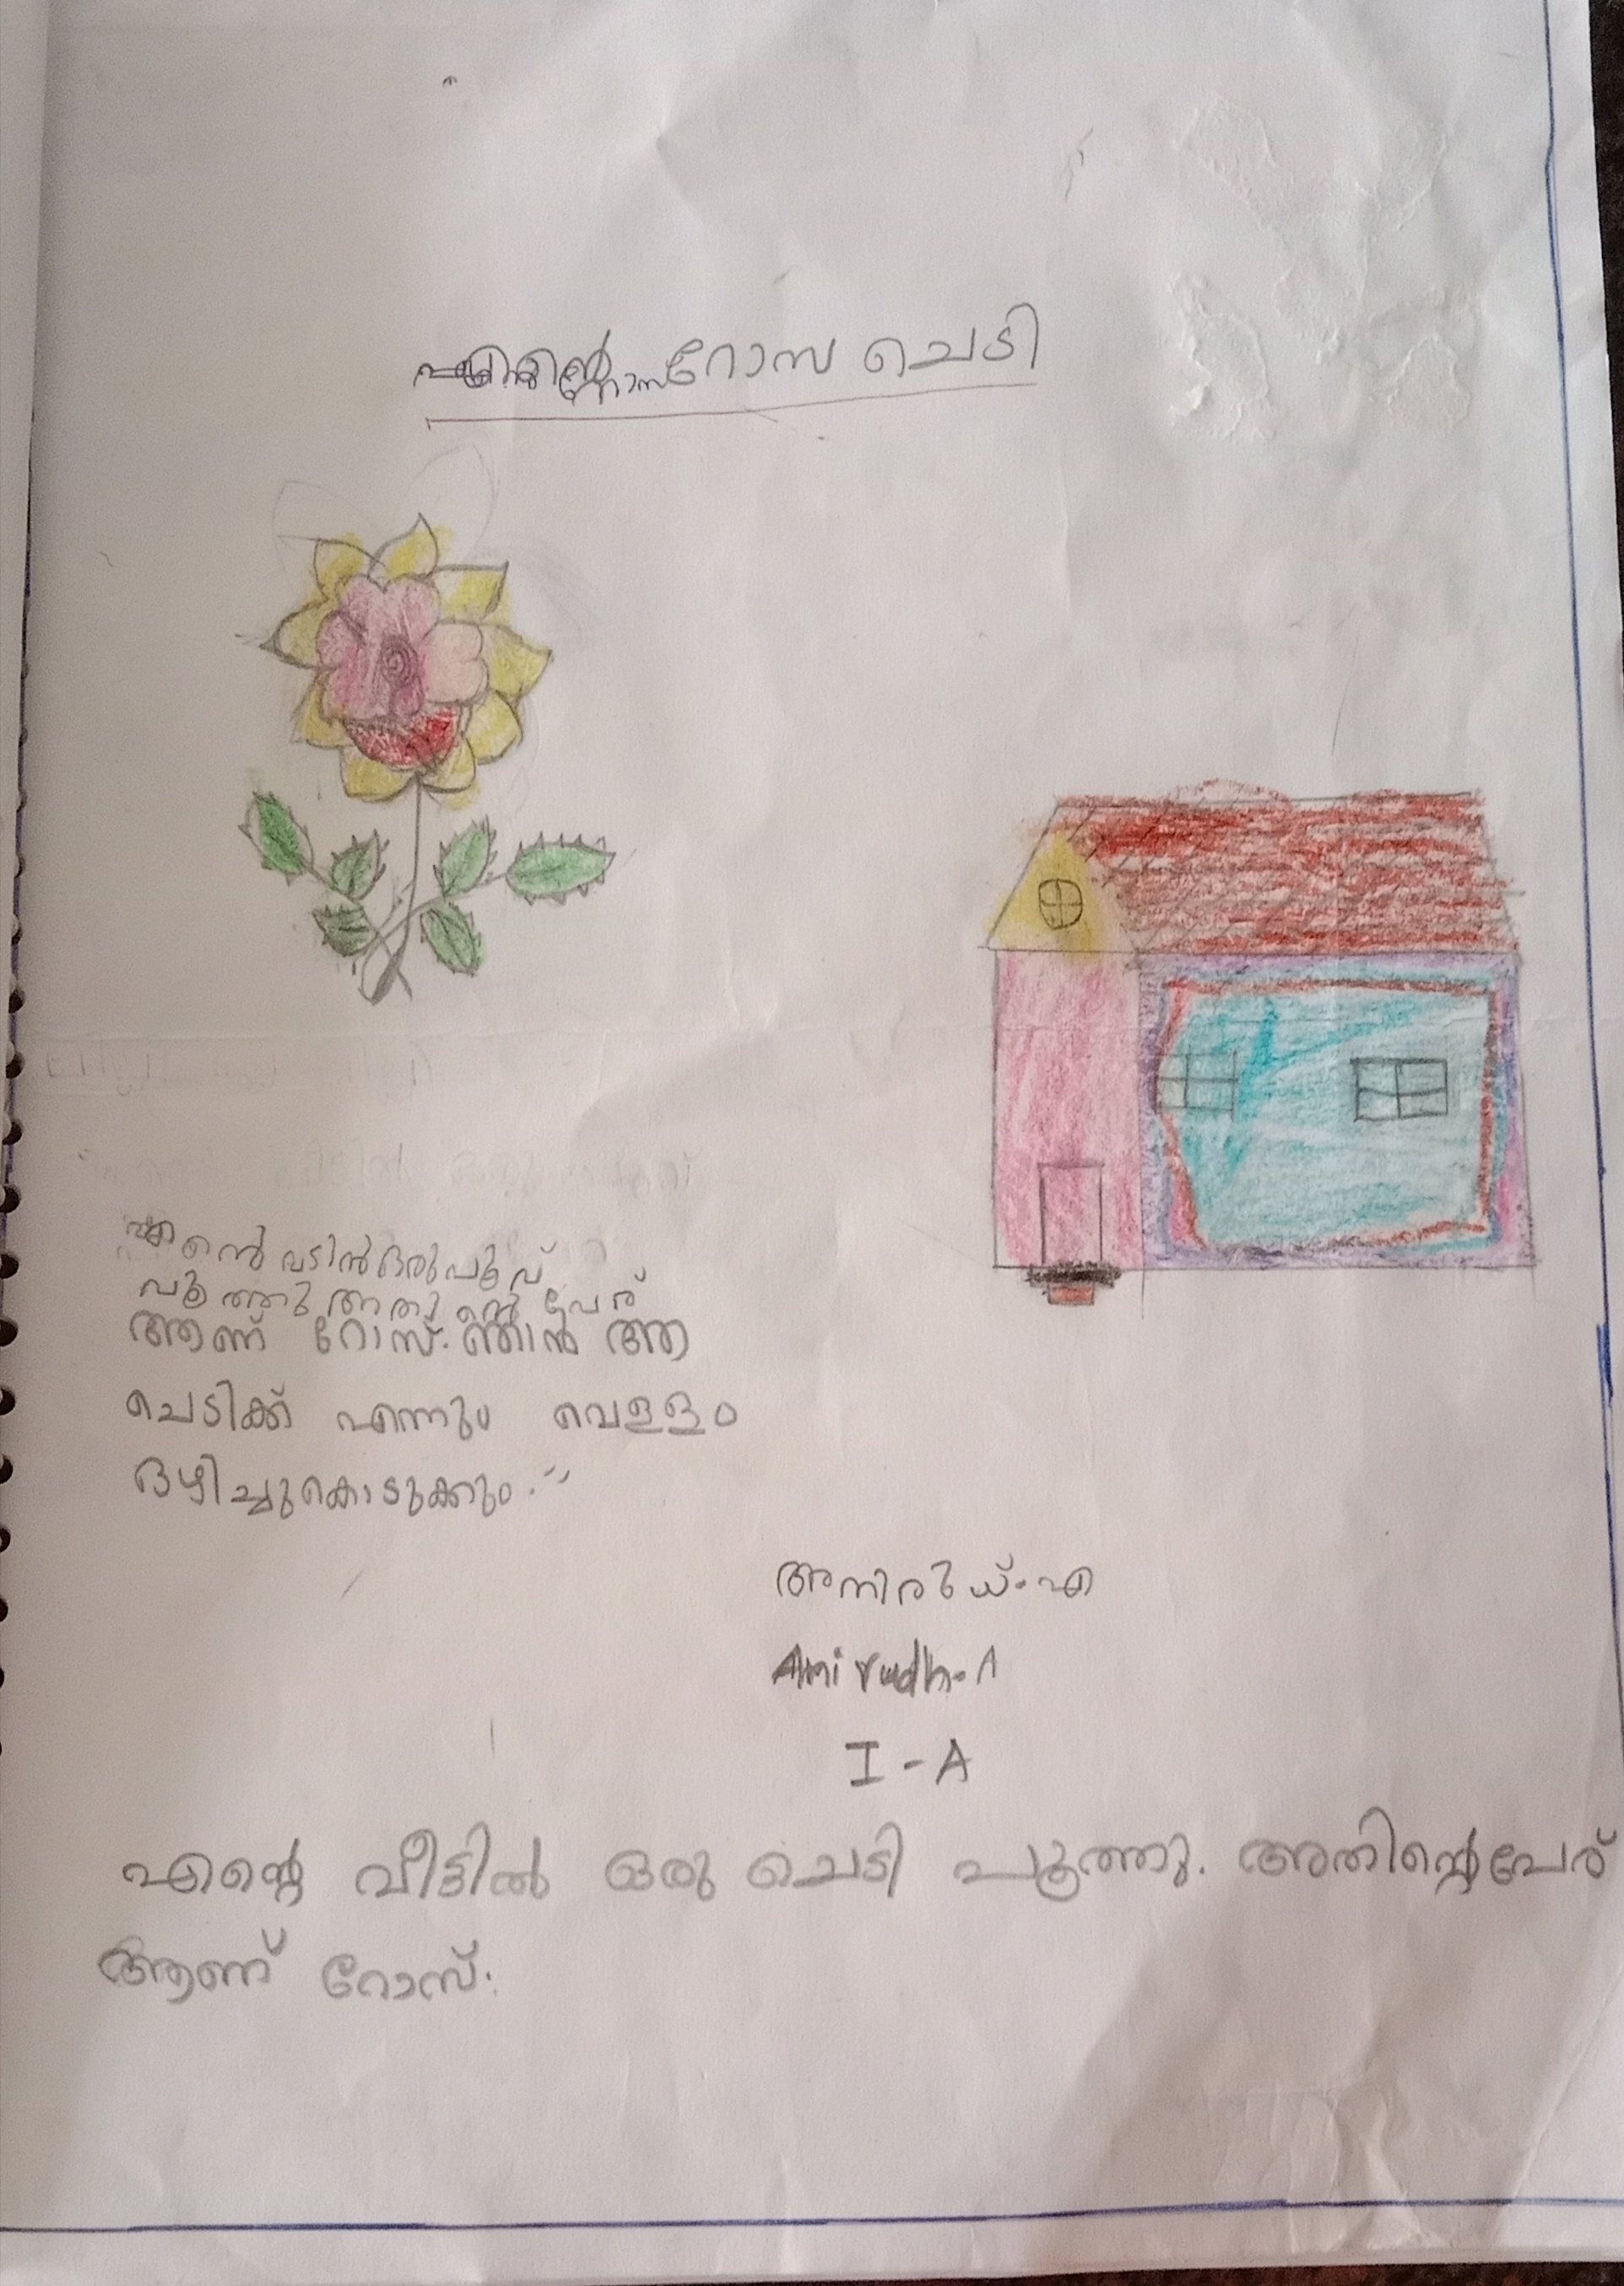 എന്റെ റോസ ചെടി
എന്റെ വടിൻ ഒരു പൂവ്
പൂത്തു അതു ന്റെ പേര്
ആണ് റോസ്. ഞാൻ ആ
ചെടിക്ക് എന്നും വെള്ളം
ഒഴിച്ചുകൊടുക്കും."
അനിരുധ്. എ
Anirudh. A
I - A
എന്റെ വീട്ടിൽ ഒരു ചെടി പൂത്തു. അതിന്റെ പേര്
ആണ് റോസ്.